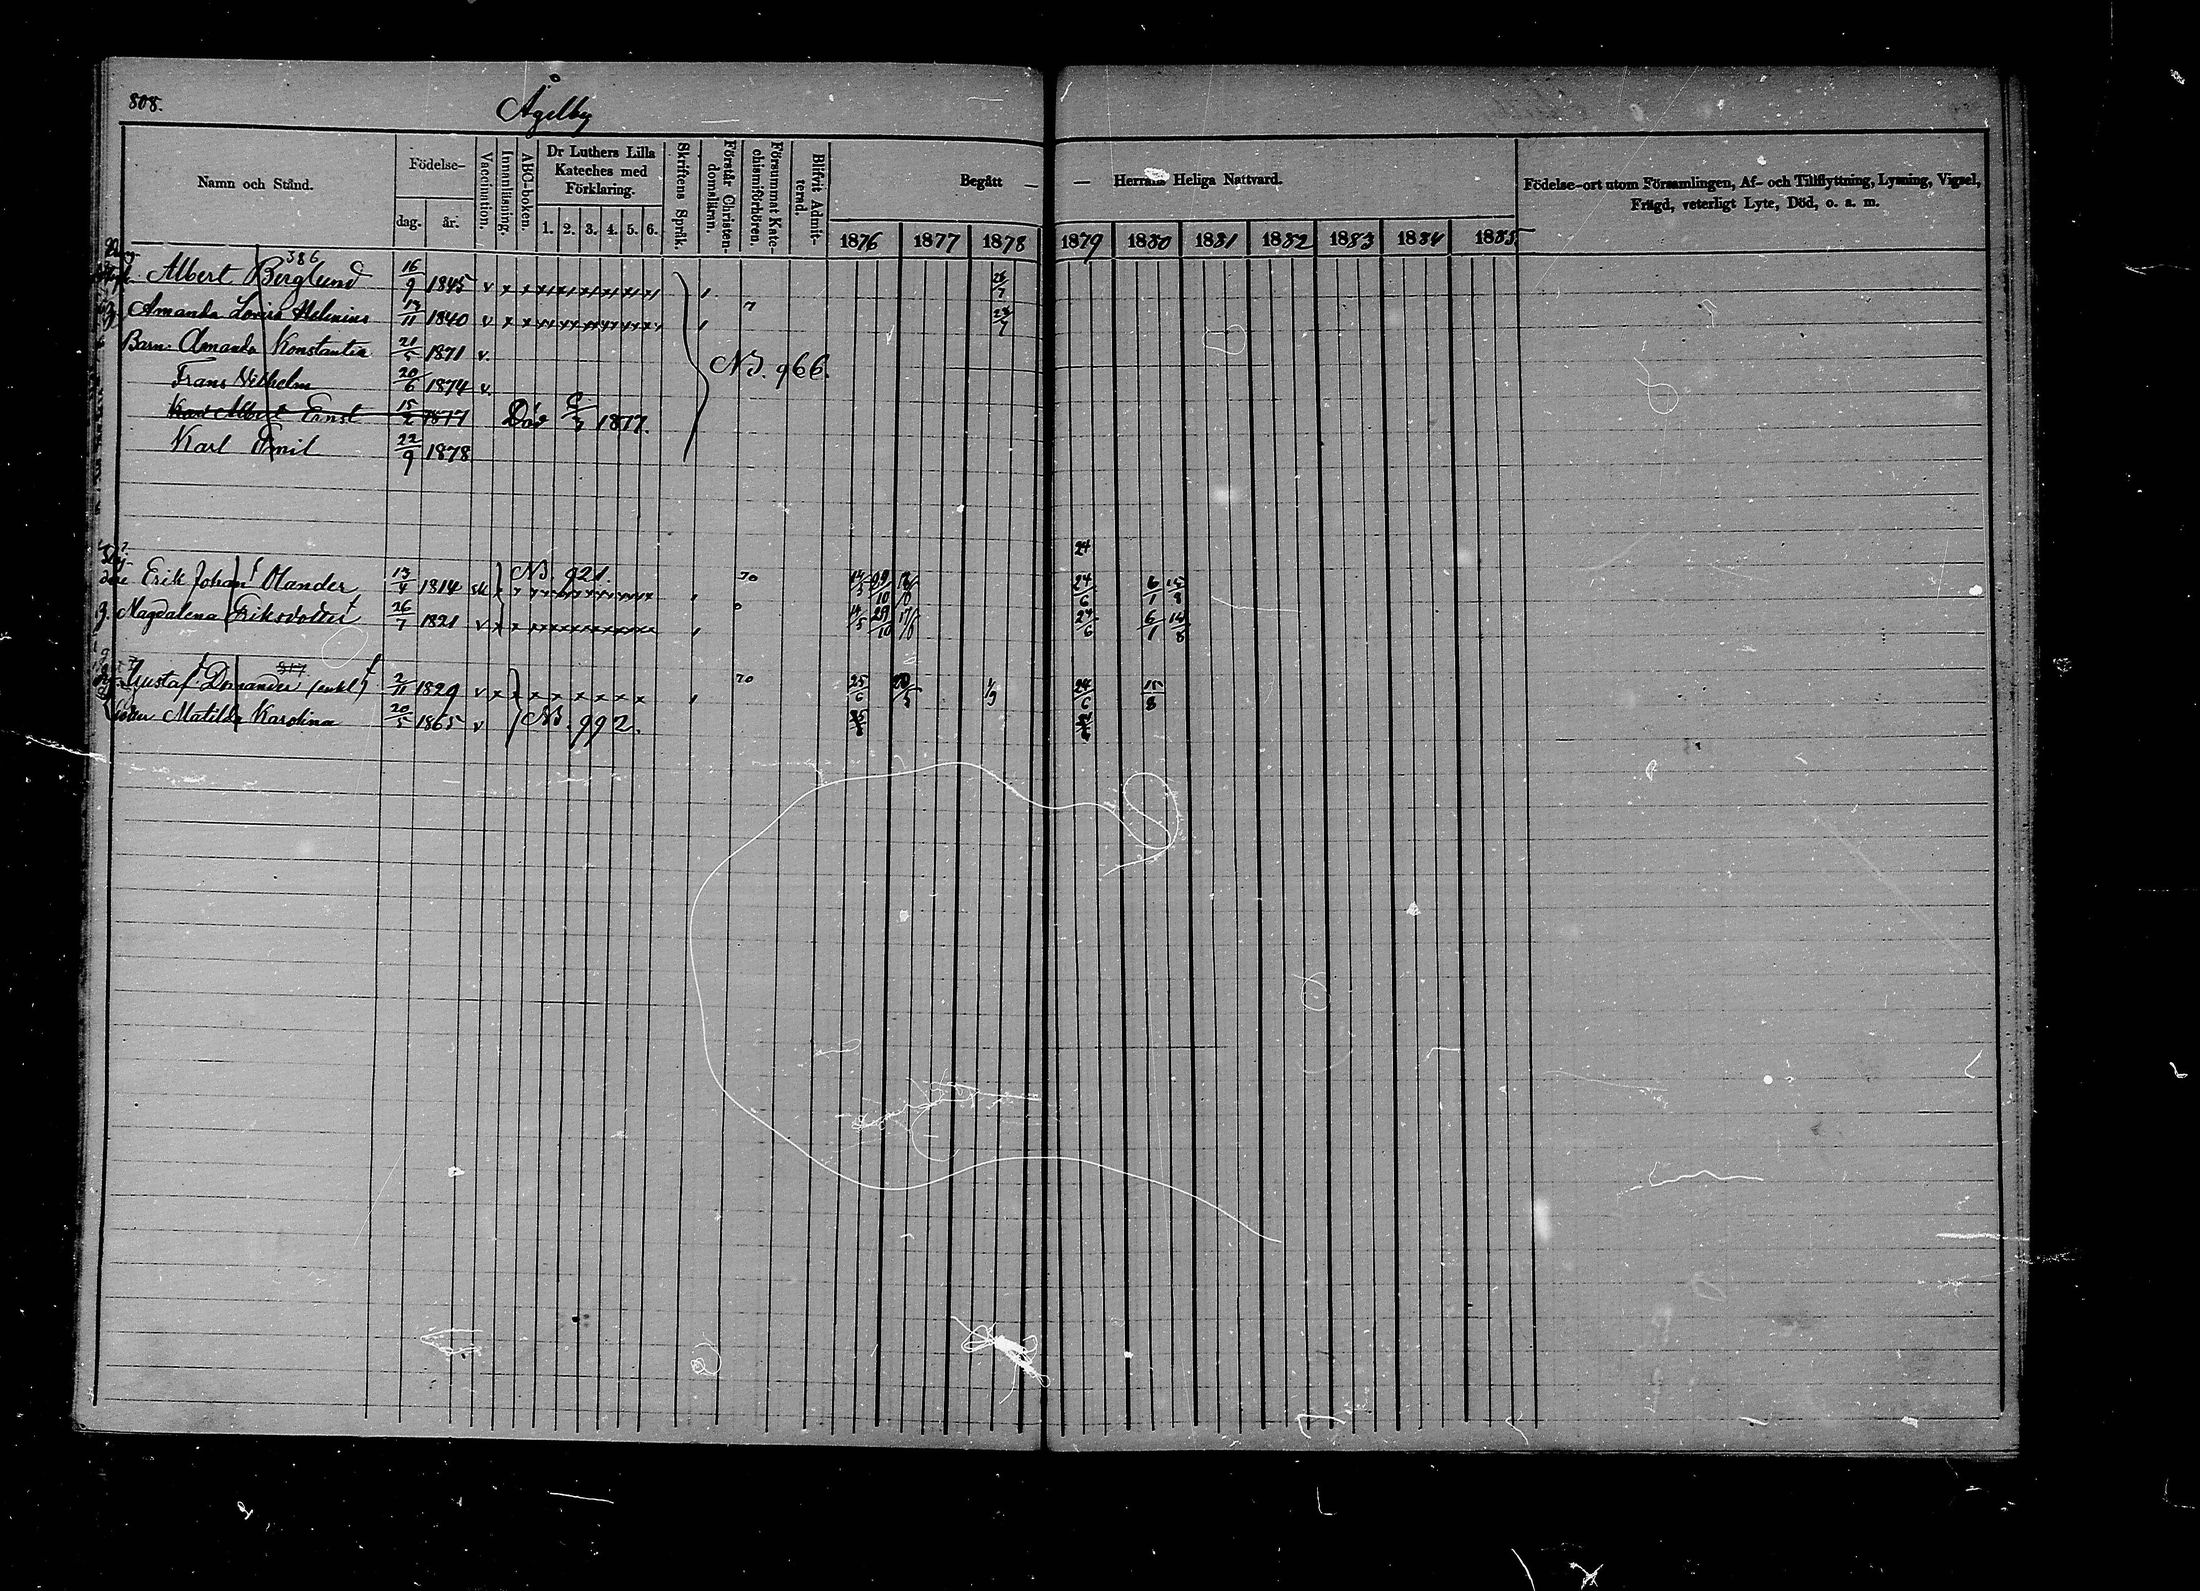 808.
Ågelby
Namn och Stånd.
Födelse-
dag.
år.
Vaccination.
Innanläsning.
ABC-boken.
Dr Luthers Lilla
Kateches med
Förklaring.
1. 2. 3. 4. 5. 6.
Skriftens Språk.
Förstår Christen-
domsläran.
Försummat Kate-
chismiförhören.
Blifvit Admit-
terad.
Begått — — Herrans Heliga Nattvard.
1876 1877 1878 1879 1880 1881 1882 1883 1884 1885
Födelse-ort utom Församlingen, Af- och Tillflyttning, Lysning, Vigsel,
Frägd, veterligt Lyte, Död, o. s. m.
386
Albert Berglund 16/9 1845 v
Amanda Lovisa Helenius 13/11 1840 v 7
Barn. Amanda Konstantia 21/5 1871 v.
N3. 966.
Frans Vilhelm 20/6 1874 v.
Karl Albert Ernst 15/2 1877 Död 1877.
Karl Emil 22/9 1878
24
N3. 921.
Erik Johan Olander 13/4 1814 sk 70 14/5 29/10 24/6 6/1 15/8
Magdalena Eriksdotter 26/7 1821 v 14/5 29/10 24/6 6/1 14/8
817
Gustaf Domander (enkl) 2/11 1829 v 70 25/6 20/5 1/9 24/6 15/8
Dotter Matilda Karolina 20/5 1865 v N3. 992. 25/6 24/6